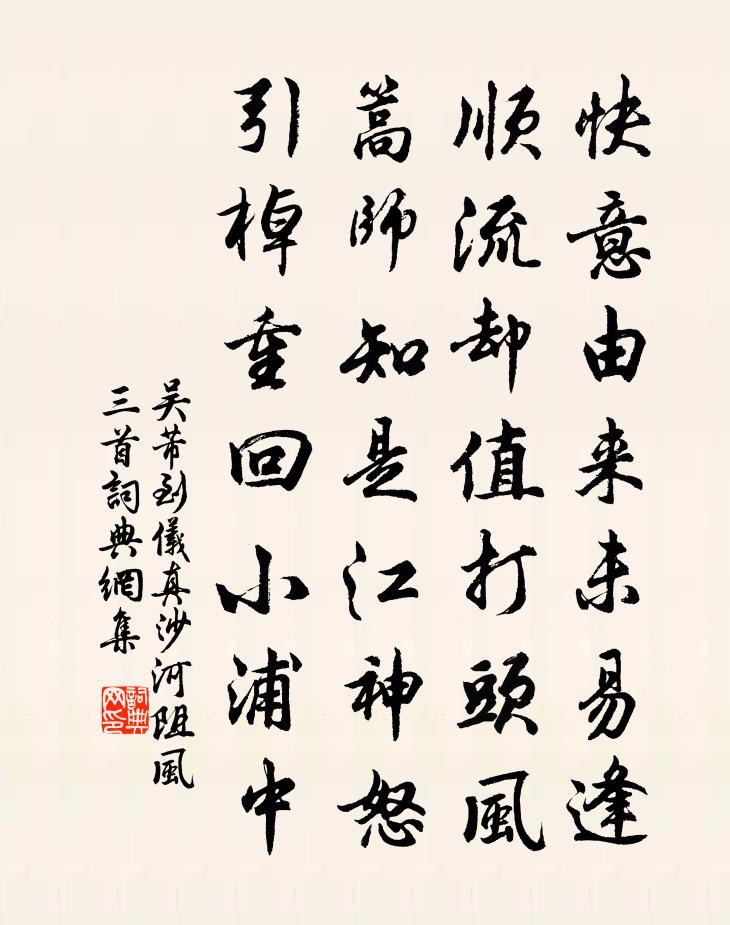 快意由来未易逢
順流却值打頭風
蒿師知是江神怒
引棹重回小浦中
吴芾到儀真沙河阻風
三首詞典網集
詞典网印